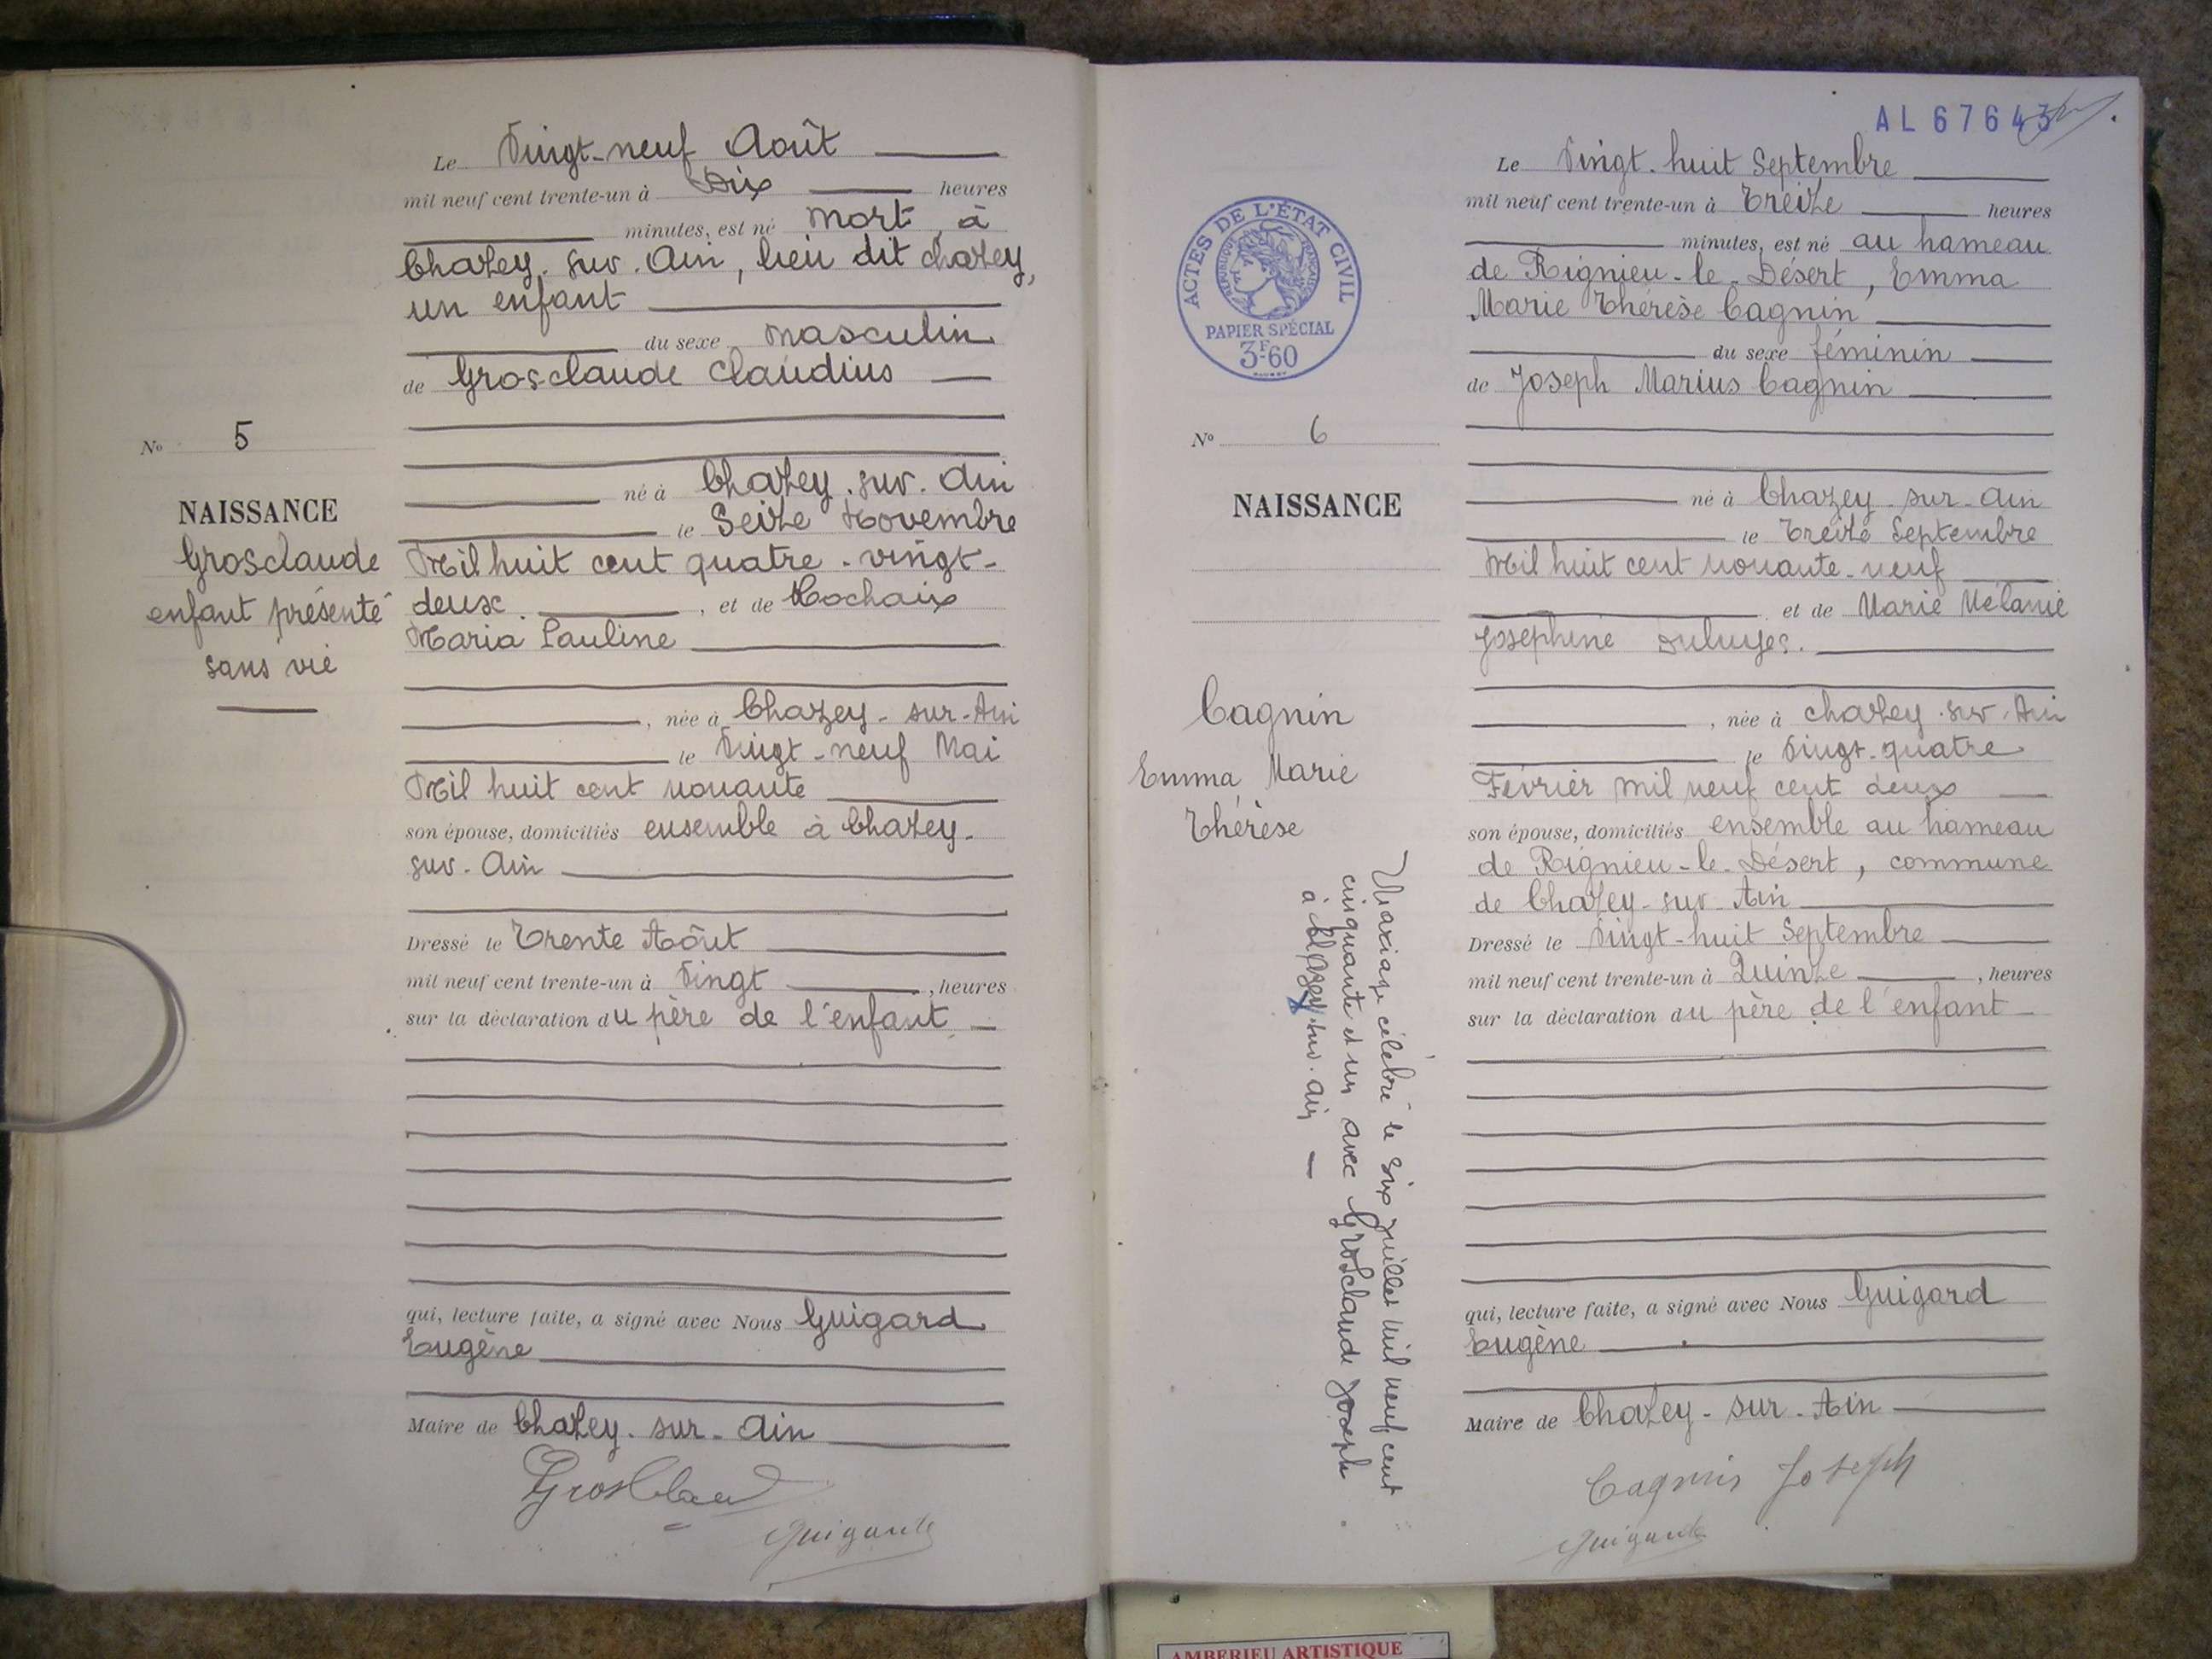 Le Vingt-neuf Août
mil neuf cent trente-un à Dix heures
minutes, est né mort, à
Chazey-sur-Ain, lieu dit chazey,
un enfant
du sexe masculin
de Grosclaude Claudius
né à Chazey-sur-Ain
le Seize Novembre
Mil huit cent quatre-vingt-
deux, et de Cochaix
Maria Pauline
, née à Chazey-sur-Ain
le Vingt-neuf Mai
Mil huit cent nonante
son épouse, domiciliés ensemble à Chazey-
sur-Ain
Dressé le Trente Août
mil neuf cent trente-un à Vingt, heures
sur la déclaration du père de l'enfant
qui, lecture faite, a signé avec Nous Guigard
Eugène
Maire de Chazey-sur-Ain
Grosclaude
Guigard
No 5
NAISSANCE
Grosclaude
enfant présenté
sans vie
AL 67643
Le Vingt-huit Septembre
mil neuf cent trente-un à Treize heures
minutes, est né au hameau
de Rignieu-le-Désert, Emma
Marie Thérèse Cagnin
du sexe féminin
de Joseph Marius Cagnin
né à Chazey-sur-Ain
le Treize Septembre
Mil huit cent nonante-neuf
et de Marie Mélanie
Joséphine
, née à chazey-sur-Ain
le Vingt-quatre
Février mil neuf cent deux
son épouse, domiciliés ensemble au hameau
de Rignieu-le-Désert, commune
de Chazey-sur-Ain
Dressé le Vingt-huit Septembre
mil neuf cent trente-un à Quinze, heures
sur la déclaration du père de l'enfant
qui, lecture faite, a signé avec Nous Guigard
Eugène
Maire de Chazey-sur-Ain
Cagnin Joseph
Guigard
ACTES DE L'ÉTAT CIVIL
RÉPUBLIQUE FRANÇAISE
PAPIER SPÉCIAL
3F60
No 6
NAISSANCE
Cagnin
Emma Marie
Thérèse
Mariage célébré le six juillet mil neuf cent
cinquante et un avec Grosclaude Joseph
à Chazey-sur-Ain
AMBERIEU ARTISTIQUE